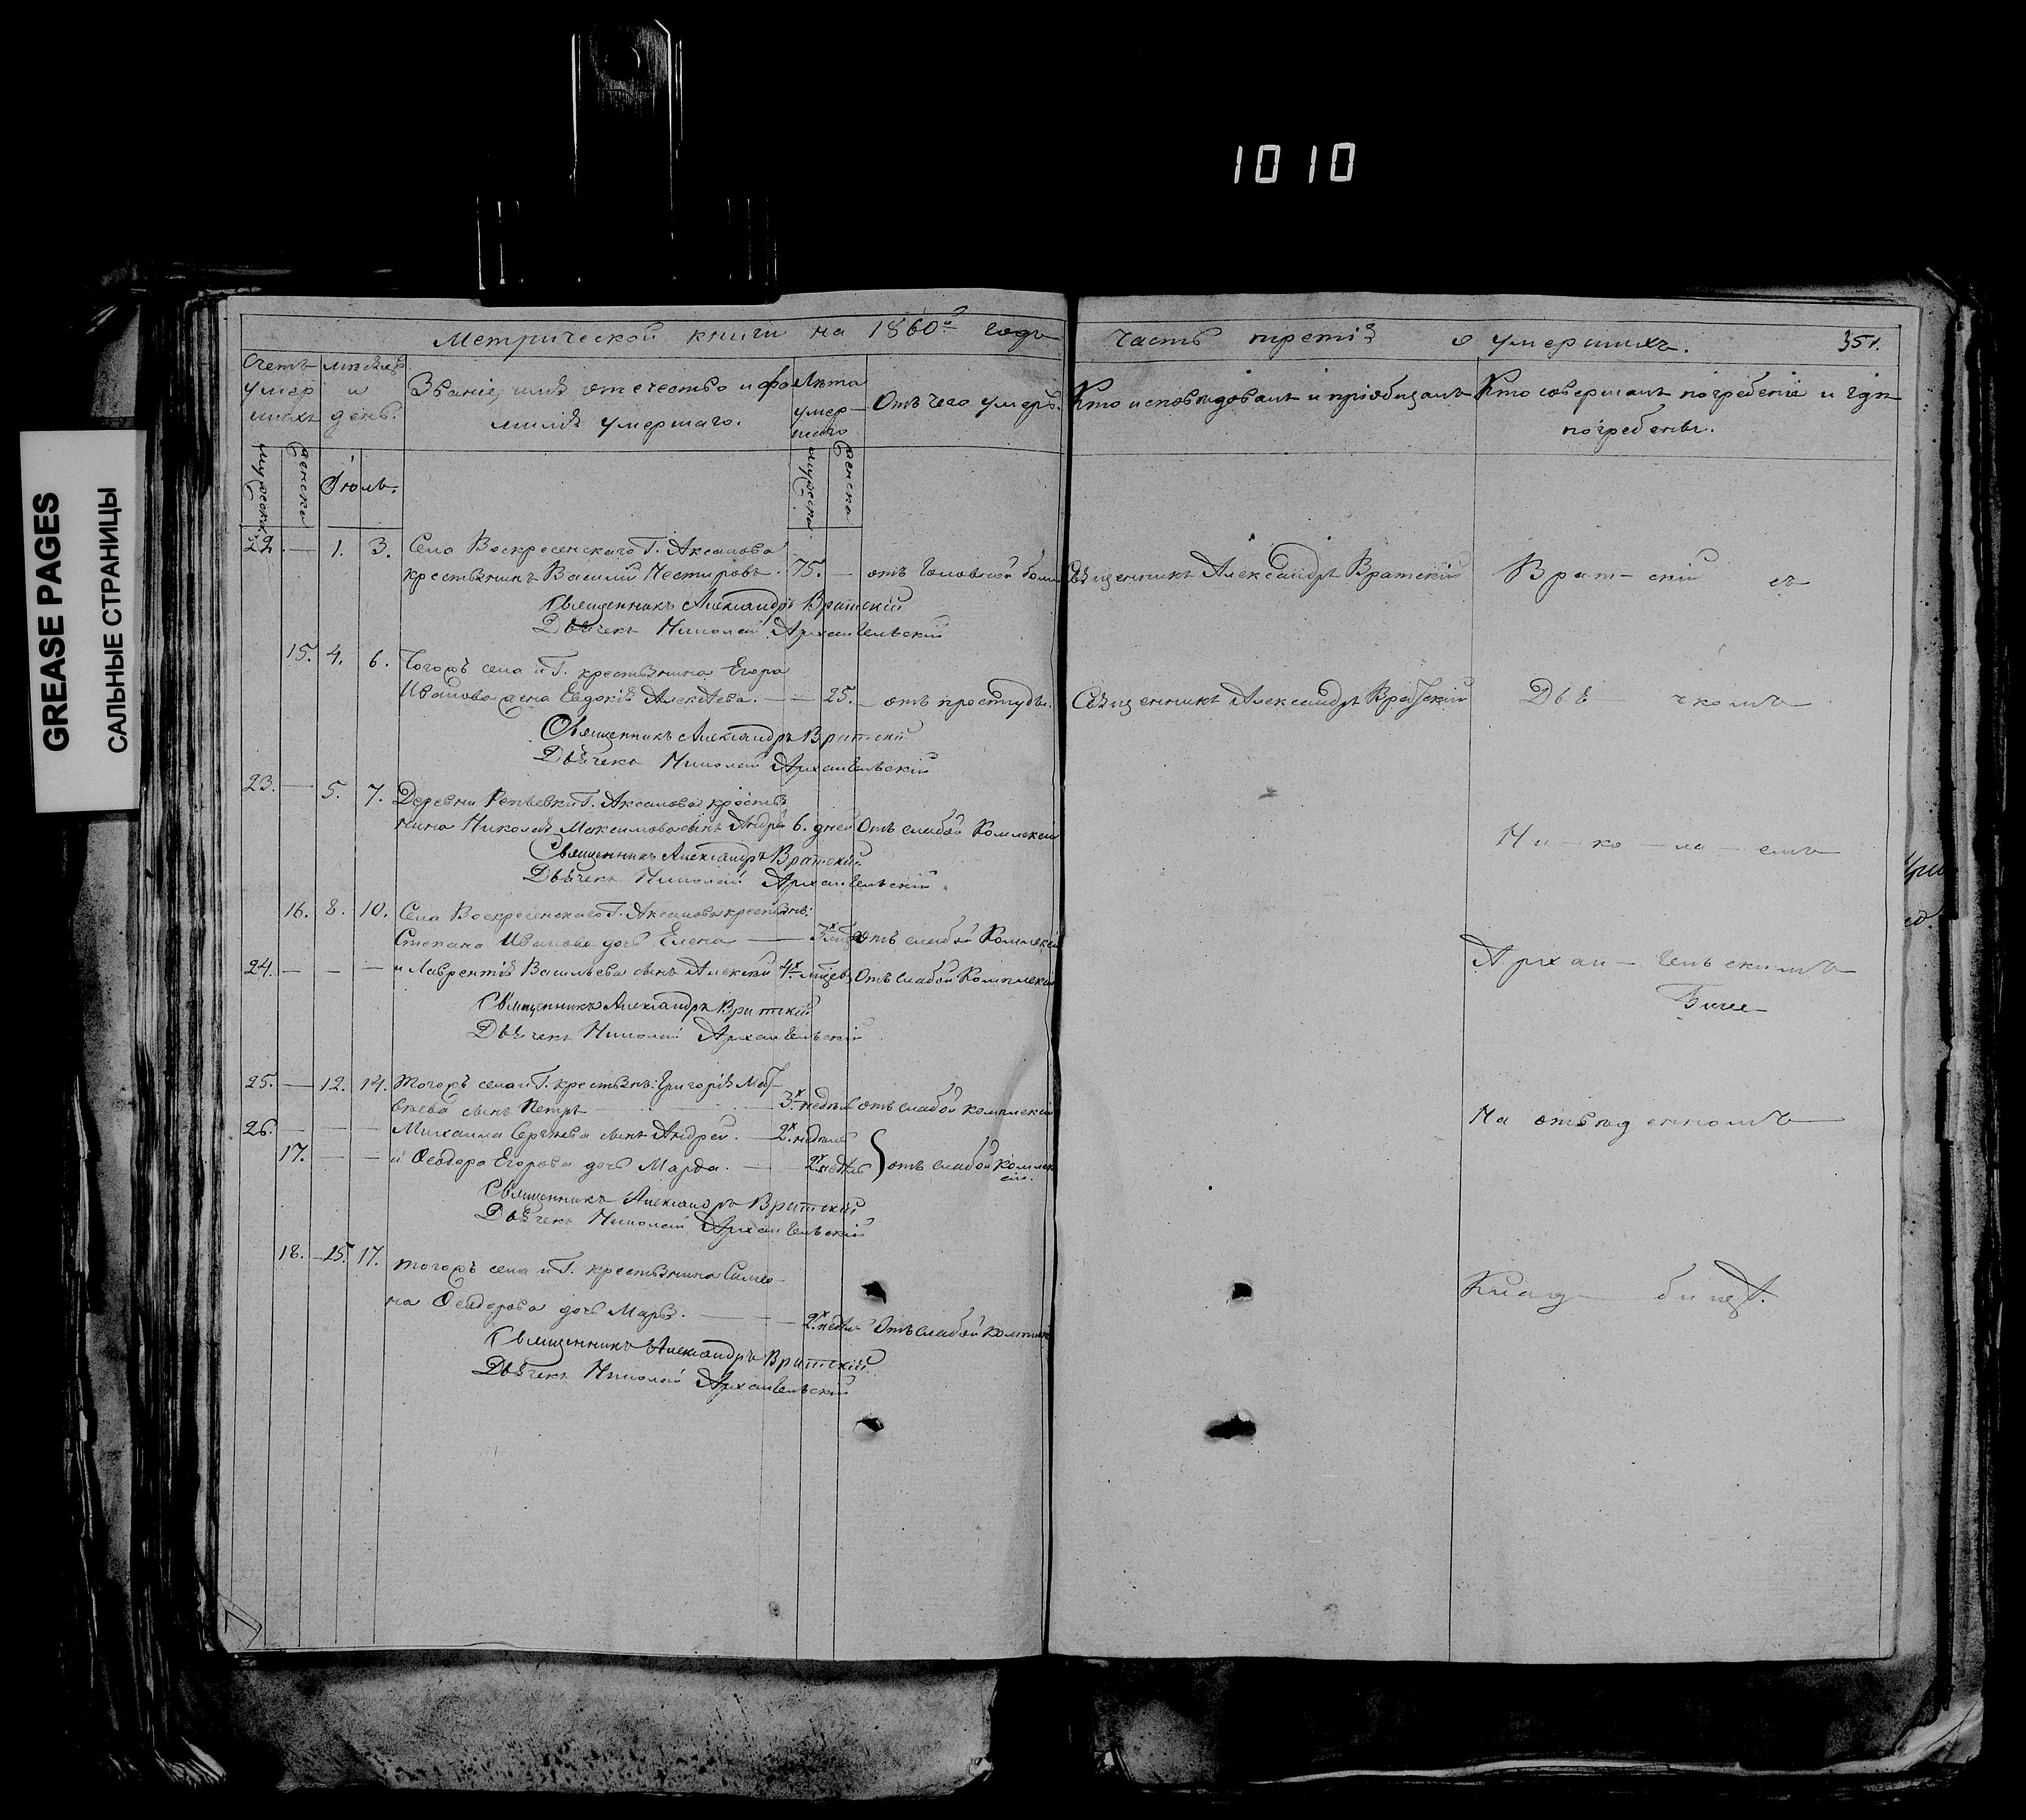 1010
GREASE PAGES
САЛЬНЫЕ СТРАНИЦЫ
Метрической книги на 1860й годъ
Часть третія о умершихъ.
351.
Счетъ умершихъ
мѣсяцъ и день.
Званіе, имя отечество и фамилія умершаго.
Лѣта умершаго
Отъ чего умеръ.
Кто исповѣдовалъ и пріобщалъ
Кто совершалъ погребеніе и гдѣ погребены.
мужеска
женска
Іюль.
мужеска
женска
22. — 1. 3. Села Воскресенскаго Г. Аксакова
крестьянинъ Василій Несторовъ. 75. — отъ головной боли Священникъ Александръ Вратскій Врат-скій съ
Священникъ Александръ Вратскій
Дьячекъ Николай Архангельскій
15. 4. 6. Тогожъ села и Г. крестьянина Егора
Иванова жена Евдокія Алексѣева. — 25. — отъ простуды. Священникъ Александръ Вратскій Дья чкомъ
Священникъ Александръ Вратскій
Дьячекъ Николай Архангельскій
23. — 5. 7. Деревни Репьевки Г. Аксакова крестья
нина Николая Максимова сынъ Андрей 6. дней Отъ слабой Комплекціи Ни-ко-ла-емъ
Священникъ Александръ Вратскій
Дьячекъ Николай Архангельскій
16. 8. 10. Села Воскресенскаго Г. Аксакова крестьян:
Степана Иванова дочь Елена — отъ слабой Комплекціи
24. — — — и Лаврентія Васильева сынъ Алексей 4х мѣсяц. Отъ слабой Комплекціи Архан-гельскимъ
Священникъ Александръ Вратскій
Дьячекъ Николай Архангельскій
25. — 12. 14. Тогожъ села и Г. крестьян: Григорія Мат-
вѣева сынъ Петръ — 3х недѣль отъ слабой комплекціи На отведенномъ
26. — — — Михаила Сергѣева сынъ Андрей. — 2х недѣль
17. — — и Ѳеодора Егорова дочь Марѳа. — 2х недѣль отъ слабой комплек
ціи.
Священникъ Александръ Вратскій
Дьячекъ Николай Архангельскій
18. — 15. 17. Тогожъ села и Г. крестьянина Симео-
на Ѳеодорова дочь Марья. — 2х недѣль Отъ слабой комплек Клад-бищѣ.
Священникъ Александръ Вратскій
Дьячекъ Николай Архангельскій